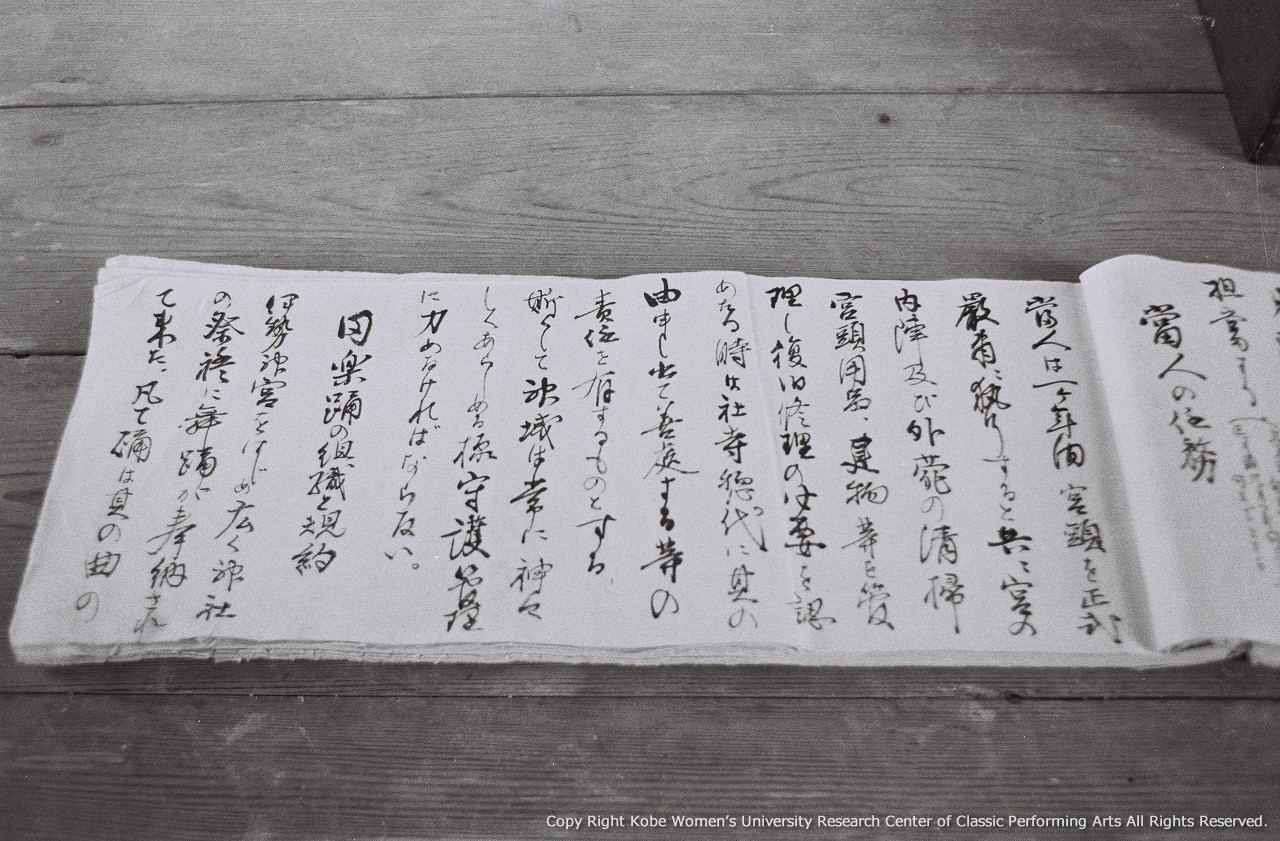 担当する
當人の任務
當人は一ヶ年間宮頭を正式
厳肅に執行すると共に宮の
内陣及び外苑の清掃
宮頭用品、建物等を管
理し復旧修理の必要を認
めたる時は社寺總代に其の
由申し出て善処する等の
責任を有するものとする
斯くして神域は常に神々
しくあらしめる様守護管理
に力めなければならない。
田楽踊の組織と規約
伊勢神宮をはじめ広く神社
の祭禮に舞踊が奉納され
て来た、凡て踊は其の曲の
Copy Right Kobe Women's University Research Center of Classic Performing Arts All Rights Reserved.